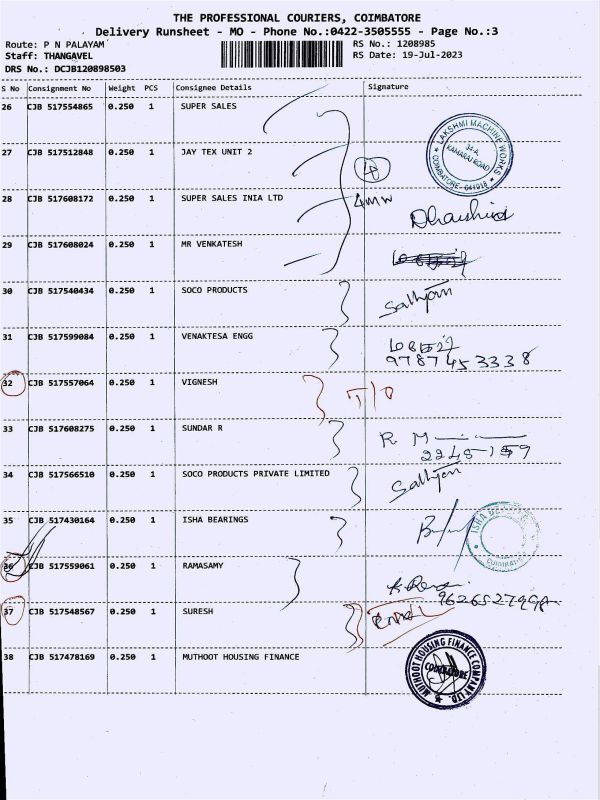 THE PROFESSIONAL COURIERS, COIMBATORE
Delivery Runsheet - MO - Phone No.:0422-3505555 - Page No.:3
Route: P N PALAYAM RS No.: 1208985
Staff: THANGAVEL RS Date: 19-Jul-2023
DRS No.: DCJB120898503
S No Consignment No Weight PCS Consignee Details Signature
26 CJB 517554865 0.250 1 SUPER SALES
LAKSHMI MACHINE WORKS
34-A,
KAMARAJ ROAD
COIMBATORE - 641018
27 CJB 517512848 0.250 1 JAY TEX UNIT 2
4
28 CJB 517608172 0.250 1 SUPER SALES INIA LTD
29 CJB 517608024 0.250 1 MR VENKATESH
30 CJB 517540434 0.250 1 SOCO PRODUCTS
31 CJB 517599084 0.250 1 VENAKTESA ENGG
9787453338
32 CJB 517557064 0.250 1 VIGNESH
33 CJB 517608275 0.250 1 SUNDAR R
R. M
34 CJB 517566510 0.250 1 SOCO PRODUCTS PRIVATE LIMITED
35 CJB 517430164 0.250 1 ISHA BEARINGS
36 CJB 517559061 0.250 1 RAMASAMY
37 CJB 517548567 0.250 1 SURESH
38 CJB 517478169 0.250 1 MUTHOOT HOUSING FINANCE
MUTHOOT HOUSING FINANCE COMPANY LTD.
COIMBATORE